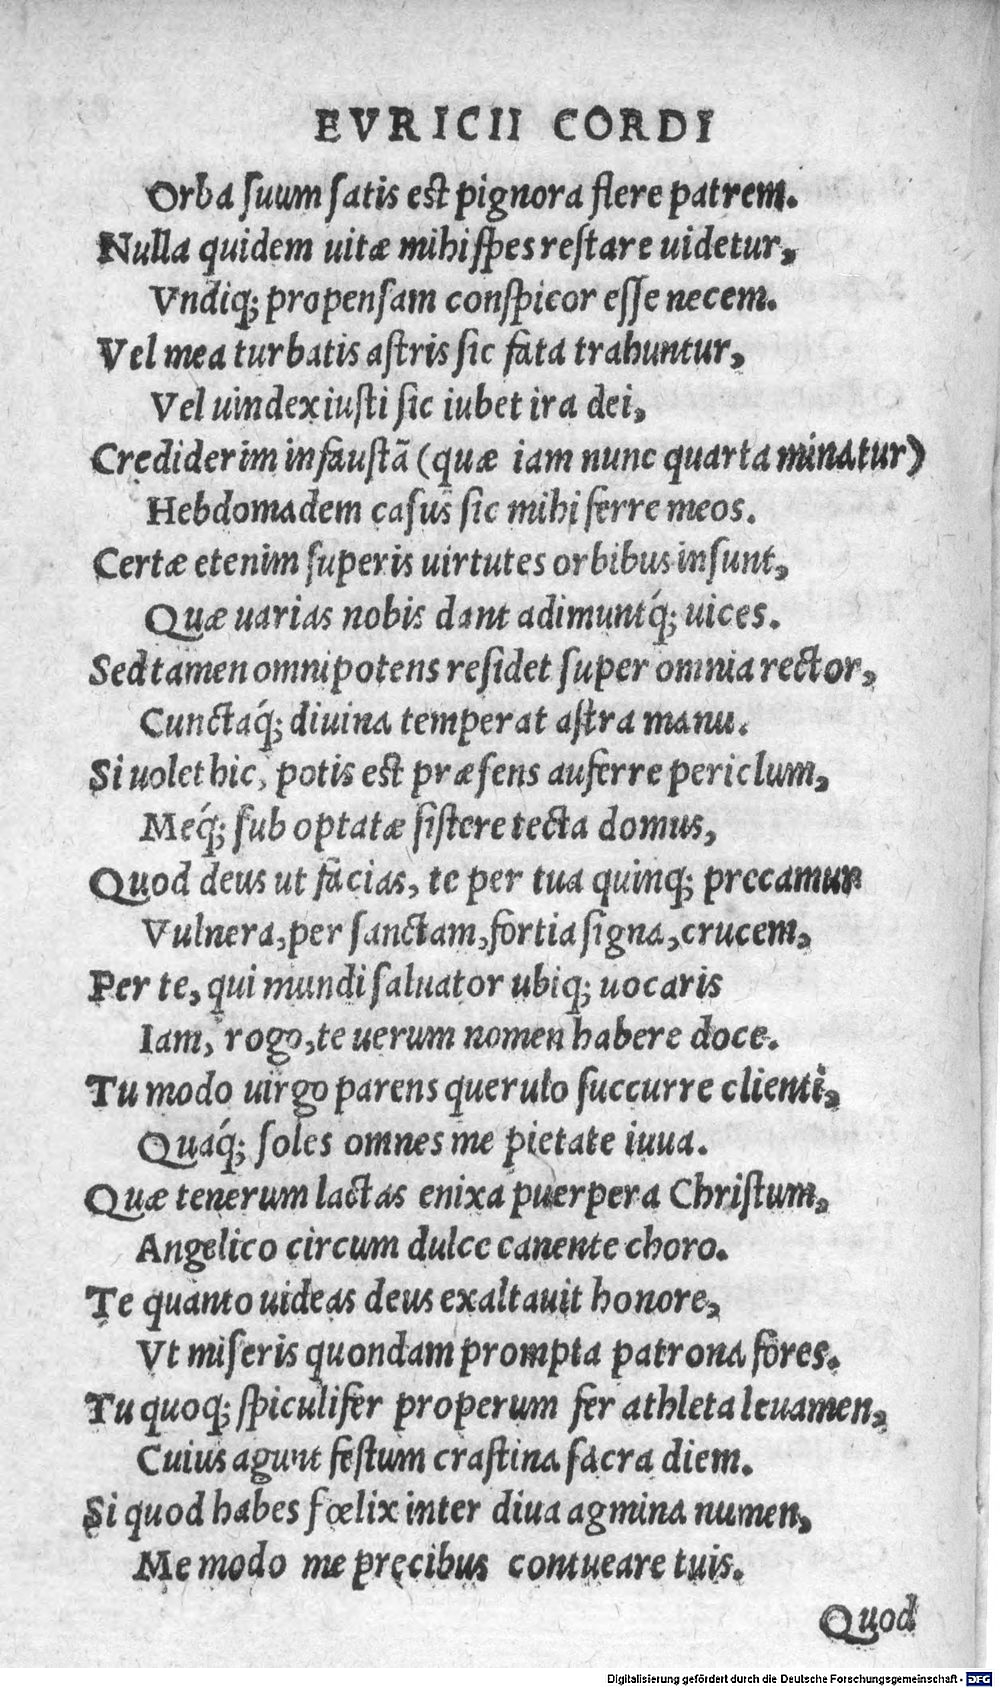 EVRICII CORDI
Orba suum satis est pignora flere patrem.
Nulla quidem uitæ mihi spes restare uidetur,
Vndiq; propensam conspicor esse necem.
Vel mea turbatis astris sic fata trahuntur,
Vel uindex iusti sic iubet ira dei,
Crediderim infaustã (quæ iam nunc quarta minatur)
Hebdomadem casus sic mihi ferre meos.
Certæ etenim superis uirtutes orbibus insunt,
Quæ uarias nobis dant adimuntq́; uices.
Sed tamen omnipotens residet super omnia rector,
Cunctaq́; diuina temperat astra manu.
Si uolet hic, potis est præsens auferre periclum,
Meq́; sub optatæ sistere tecta domus,
Quod deus ut facias, te per tua quinq; precamur
Vulnera, per sanctam, fortia signa, crucem,
Per te, qui mundi saluator ubiq; uocaris
Iam, rogo, te uerum nomen habere doce.
Tu modo uirgo parens querulo succurre clienti,
Quaq́; soles omnes me pietate iuua.
Quæ tenerum lactas enixa puerpera Christum,
Angelico circum dulce canente choro.
Te quanto uideas deus exaltauit honore,
Vt miseris quondam prompta patrona fores.
Tu quoq; spiculifer properum fer athleta leuamen,
Cuius agunt festum crastina sacra diem.
Si quod habes fœlix inter diua agmina numen,
Me modo me pręcibus contueare tuis.
Quod
Digitalisierung gefördert durch die Deutsche Forschungsgemeinschaft - DFG